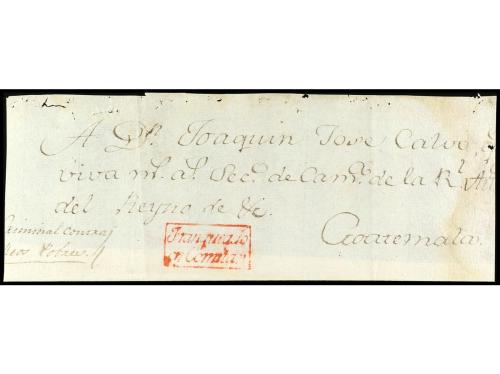 A Dn. Joaquin Jose Calvo
viva ms. as. Sec.o de Cam.a de la Rl. Au
del Reyno de &c.
Goatemala.
Criminal contra
Reos Pobres.
Franqueado
en Comitan